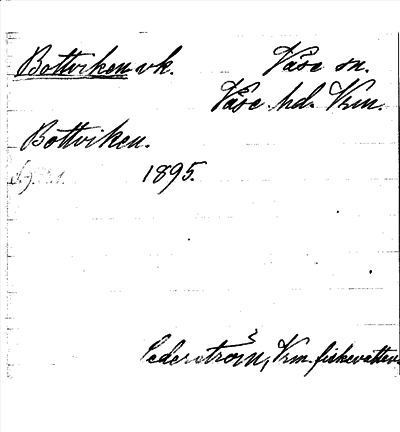 Bottviken vk. Väse sn.
Väse hd. Vrm.
Bottviken.
1895.
Cederström, Vrm. fiskevatten